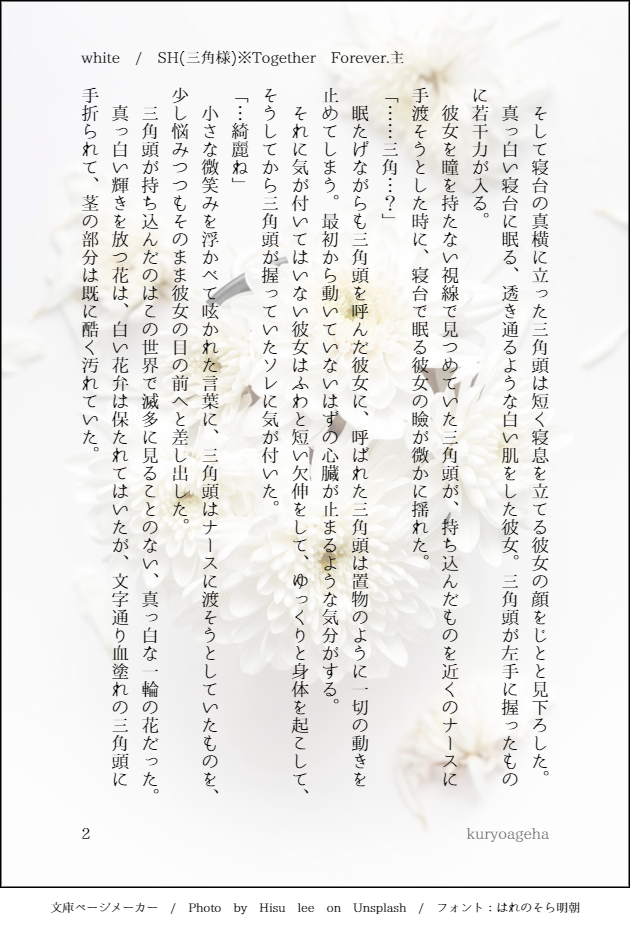 white / SH(三角様)※Together Forever.主
そして寝台の真横に立った三角頭は短く寝息を立てる彼女の顔をじとと見下ろした。
真っ白い寝台に眠る、透き通るような白い肌をした彼女。三角頭が左手に握ったもの
に若干力が入る。
彼女を瞳を持たない視線で見つめていた三角頭が、持ち込んだものを近くのナースに
手渡そうとした時に、寝台で眠る彼女の瞼が微かに揺れた。
「……三角…？」
眠たげながらも三角頭を呼んだ彼女に、呼ばれた三角頭は置物のように一切の動きを
止めてしまう。最初から動いていないはずの心臓が止まるような気分がする。
それに気が付いてはいない彼女はふわと短い欠伸をして、ゆっくりと身体を起こして、
そうしてから三角頭が握っていたソレに気が付いた。
「…綺麗ね」
小さな微笑みを浮かべて呟かれた言葉に、三角頭はナースに渡そうとしていたものを、
少し悩みつつもそのまま彼女の目の前へと差し出した。
三角頭が持ち込んだのはこの世界で滅多に見ることのない、真っ白な一輪の花だった。
真っ白い輝きを放つ花は、白い花弁は保たれてはいたが、文字通り血塗れの三角頭に
手折られて、茎の部分は既に酷く汚れていた。
2
kuryoageha
文庫ページメーカー / Photo by Hisu lee on Unsplash / フォント：はれのそら明朝